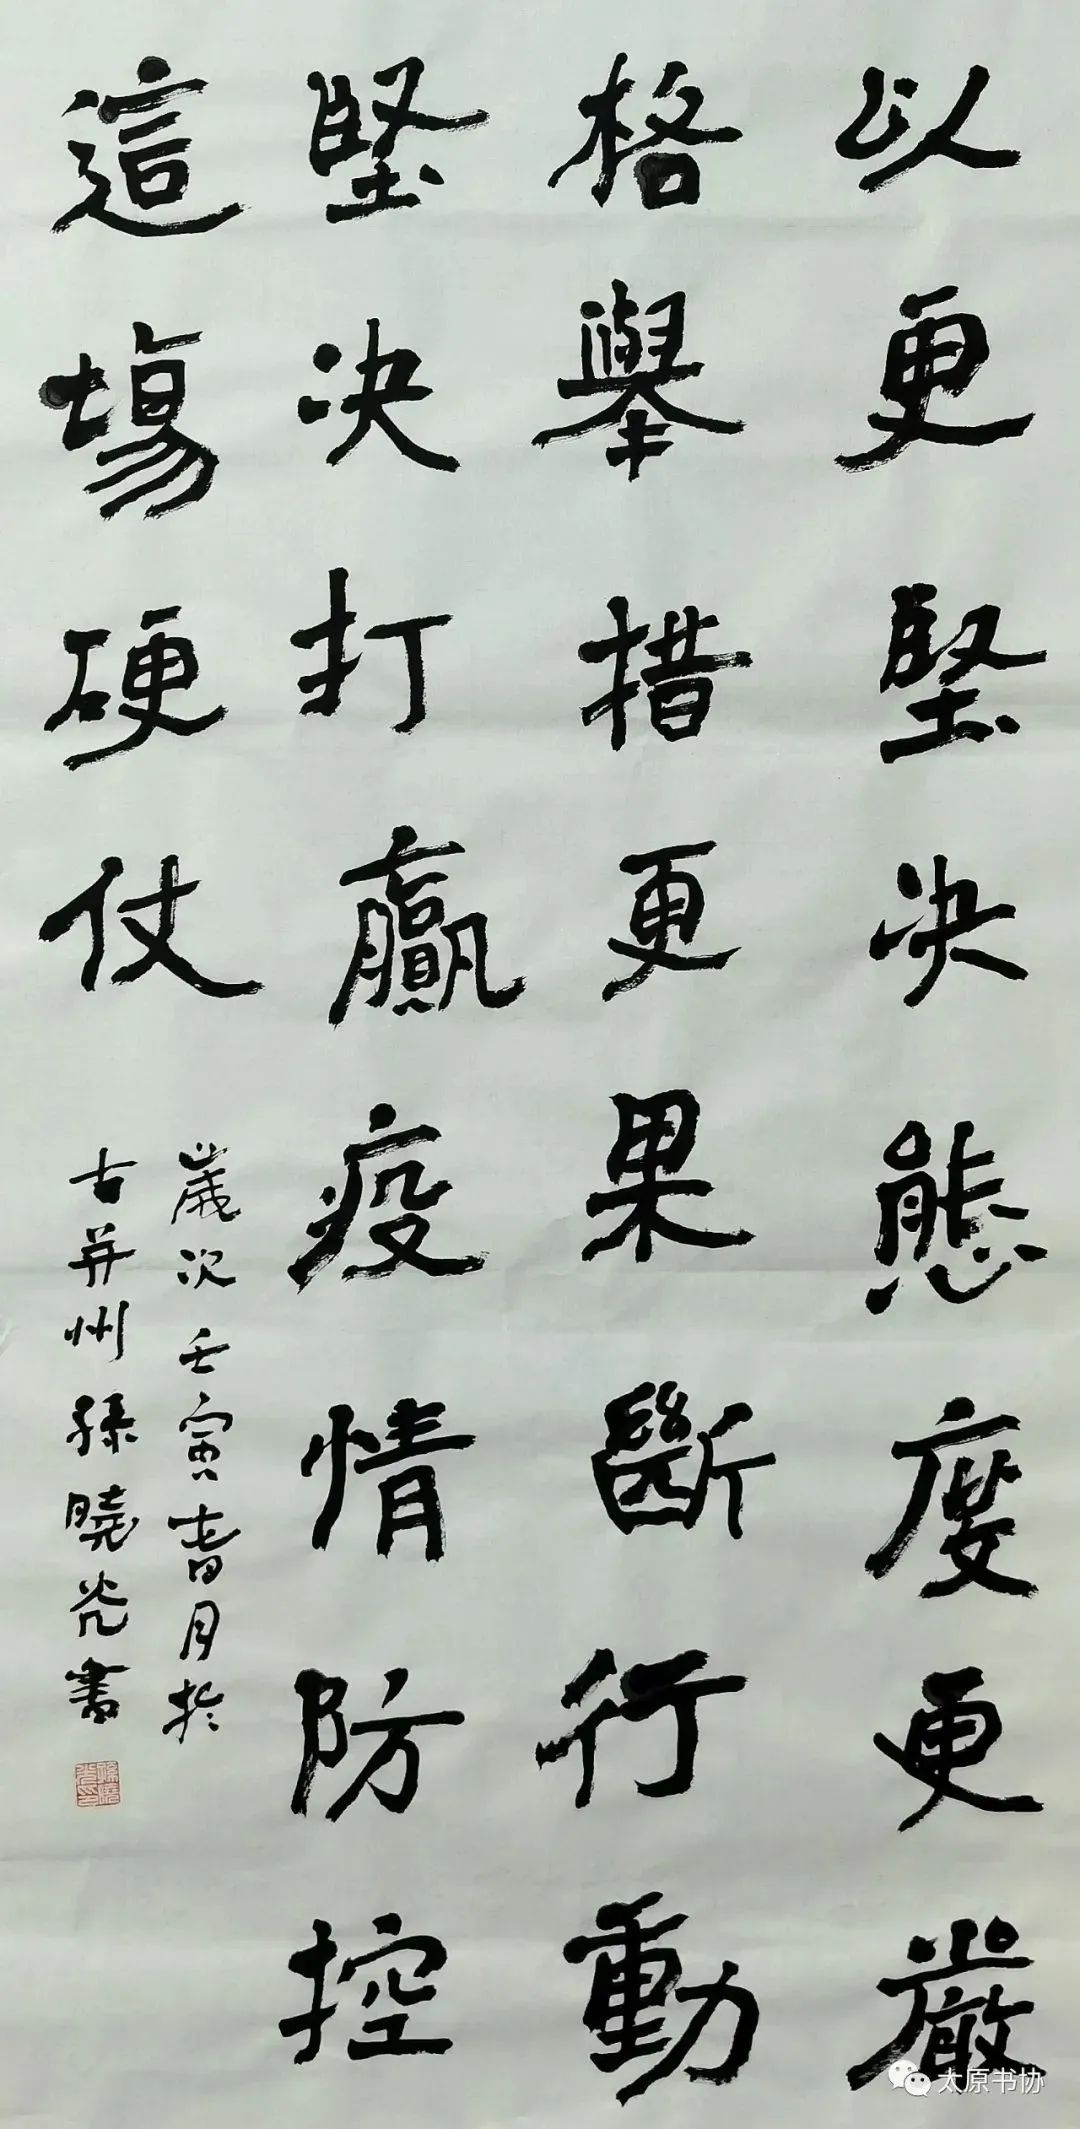 以更堅决態度更嚴
格舉措更果斷行動
堅决打贏疫情防控
這場硬仗
歲次壬寅春月於
古并州孫曉光書
太原书协